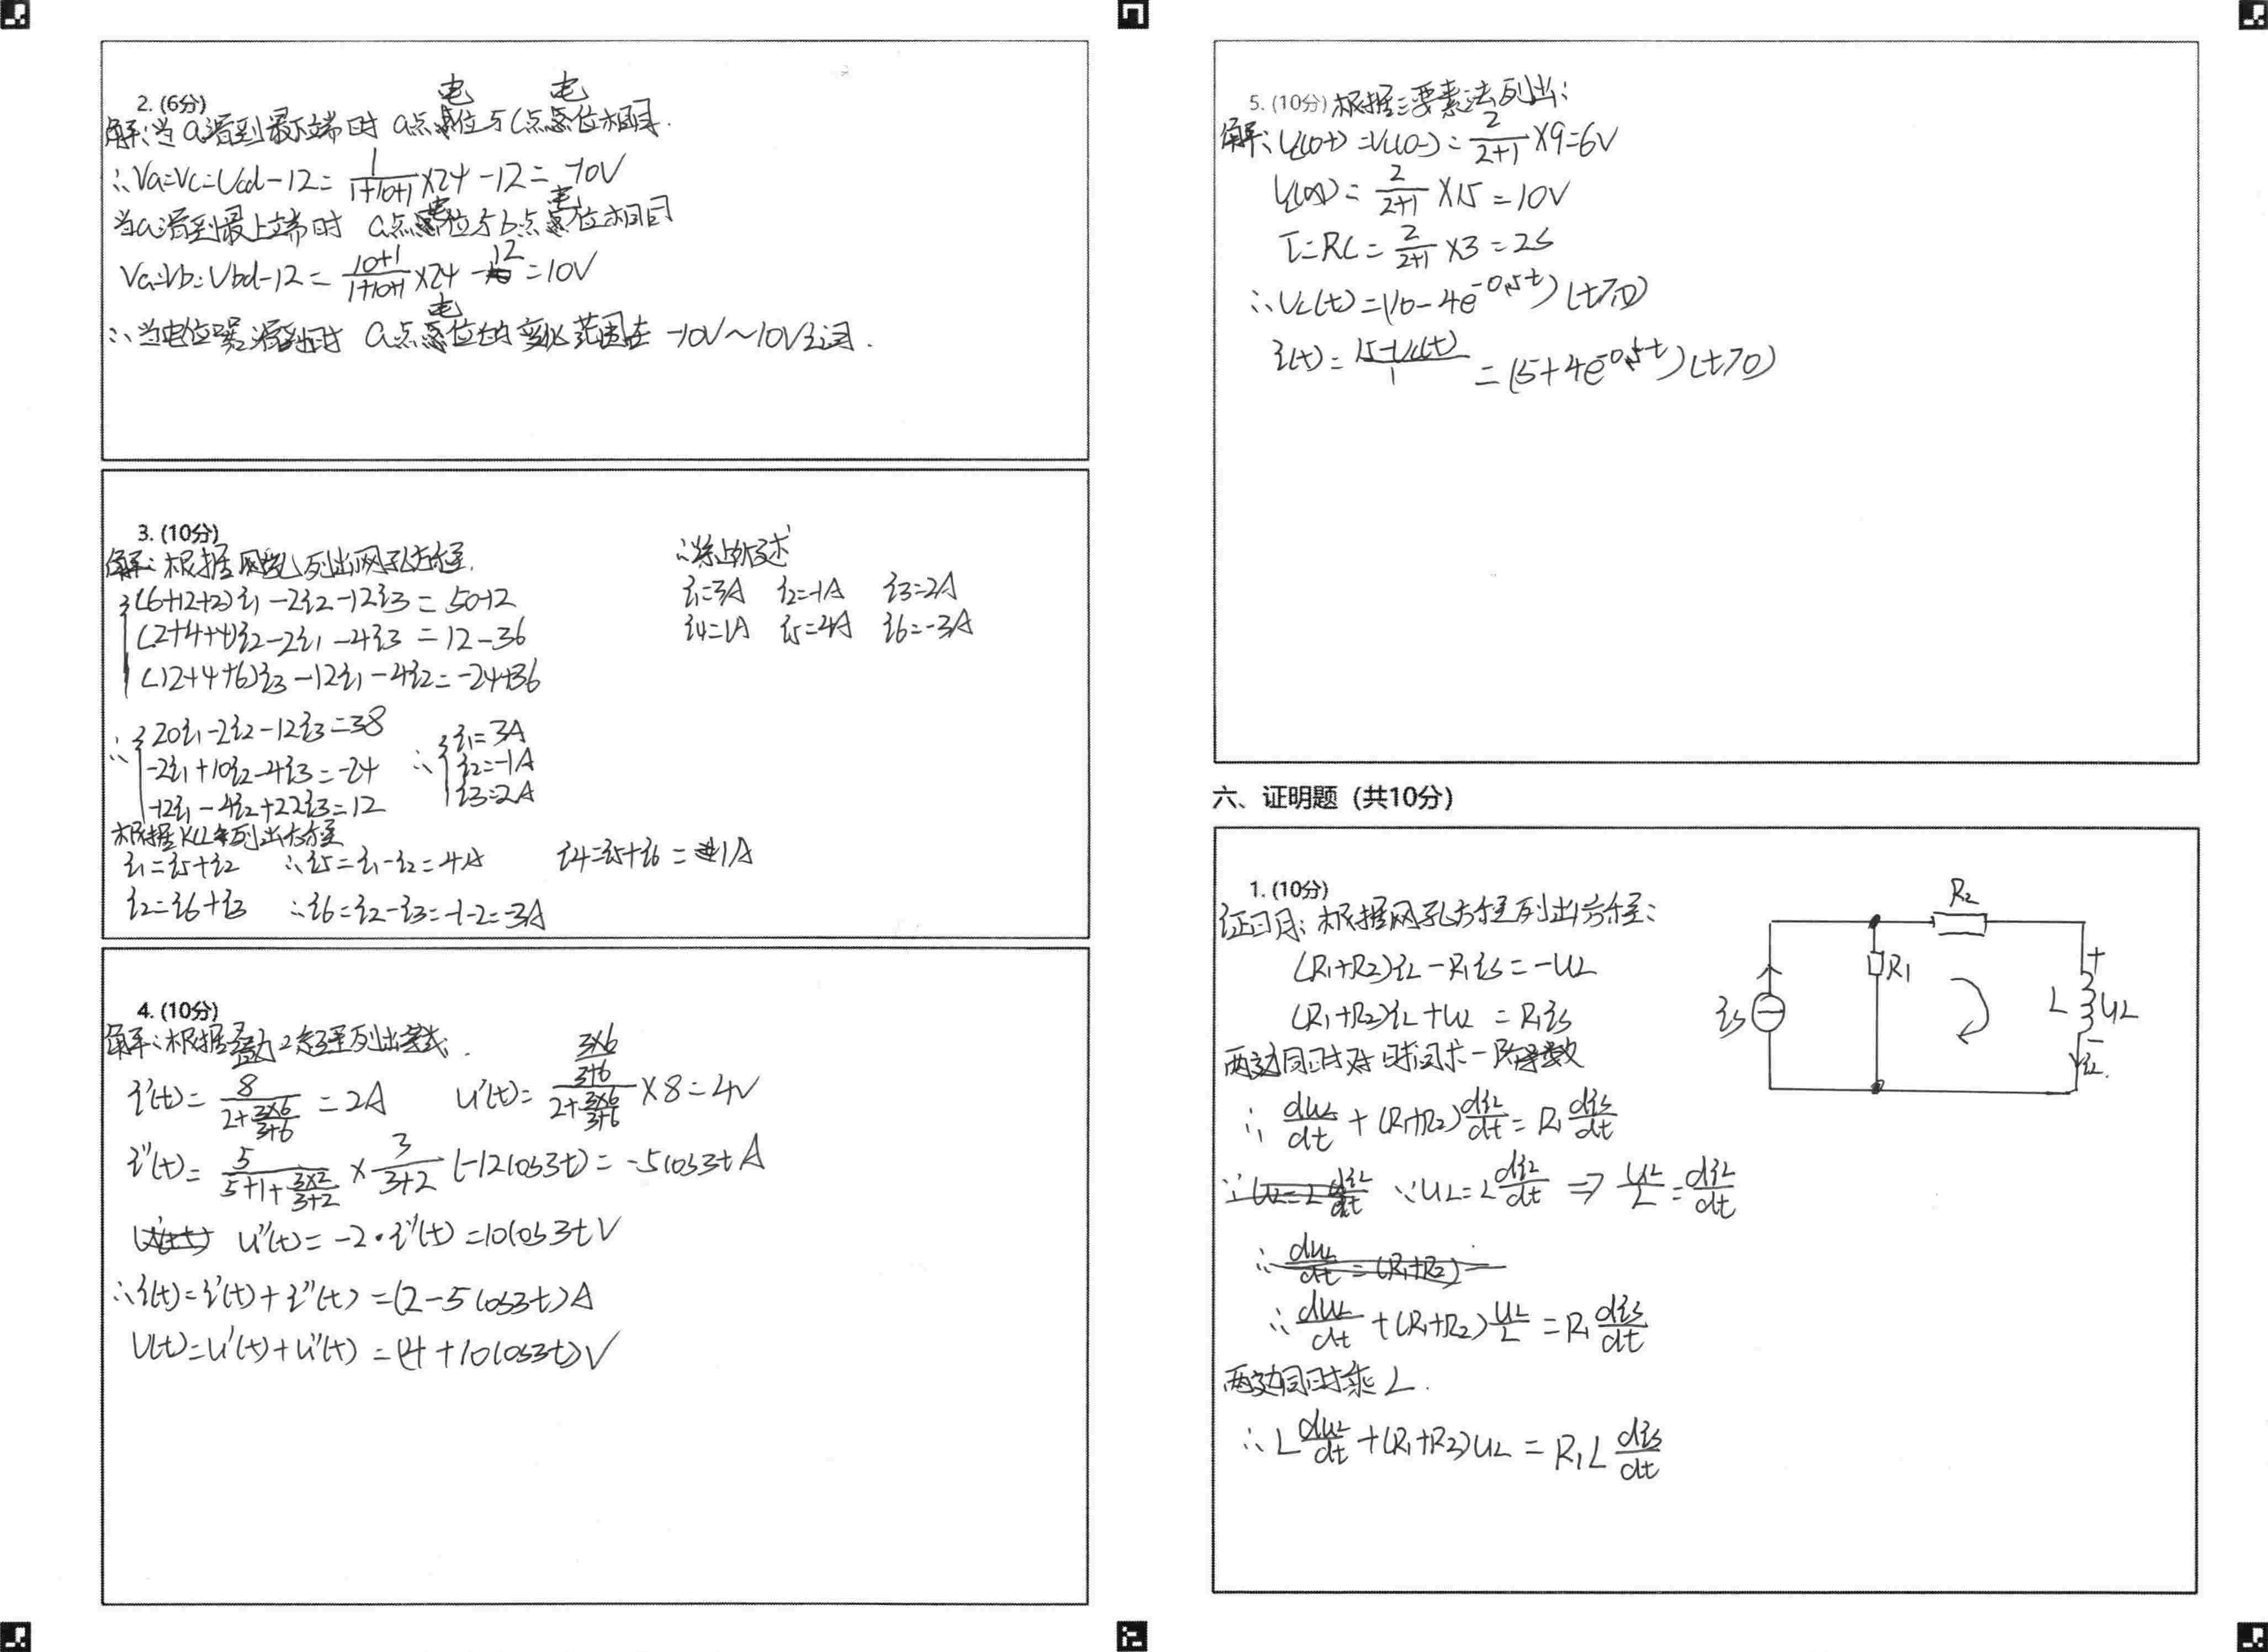 2. (6分)
解:当a滑到最下端时 a点电位与c点电位相同.
∴Va=Vc=Ucd-12= 1/(1+10+1) ×24 -12= -10V
当a滑到最上端时 a点电位与b点电位相同
Va=Vb=Ubd-12= (10+1)/(1+10+1) ×24 -12 =10V
∴当电位器滑到时 a点电位的变化范围在 -10V～10V之间.
3. (10分)
解:根据网孔列出网孔方程.
(6+12+2)i1-2i2-12i3=50-12
(2+4+4)i2-2i1-4i3=12-36
(12+4+6)i3-12i1-4i2=-24+36
∴ 20i1-2i2-12i3=38
-2i1+10i2-4i3=-24
-12i1-4i2+22i3=12
∴ i1=3A
i2=-1A
i3=2A
根据KCL列出方程
i1=i5+i2 ∴i5=i1-i2=4A i4=i5+i6=1A
i2=i6+i3 ∴i6=i2-i3=-1-2=-3A
∴综上所述
i1=3A i2=-1A i3=2A
i4=1A i5=4A i6=-3A
4. (10分)
解:根据叠加定理列出等式.
i'(t)= 8/(2+(3×6)/(3+6)) =2A u'(t)= ((3×6)/(3+6))/(2+(3×6)/(3+6)) ×8=4V
i''(t)= 5/(5+1+(3×2)/(3+2)) × 3/(3+2) (-12cos3t)=-5cos3tA
u''(t)=-2·i''(t)=10cos3tV
∴i(t)=i'(t)+i''(t)=(2-5cos3t)A
U(t)=u'(t)+u''(t)=(4+10cos3t)V
5. (10分) 根据三要素法列出:
解:Uc(0+)=Uc(0-)= 2/(2+1) ×9=6V
Uc(∞)= 2/(2+1) ×15=10V
τ=RC= 2/(2+1) ×3=2s
∴Uc(t)=(10-4e^-0.5t)(t>0)
i(t)= (15-Uc(t))/1 =(5+4e^-0.5t)(t>0)
六、证明题（共10分）
1. (10分)
证明:根据网孔方程列出方程:
(R1+R2)iL-R1is=-UL
(R1+R2)iL+UL=R1is
两边同时对时间求一阶导数
∴ duL/dt +(R1+R2) diL/dt = R1 dis/dt
∵UL=L diL/dt ⇒ UL/L = diL/dt
∴ duL/dt +(R1+R2) UL/L = R1 dis/dt
两边同时乘L.
∴L duL/dt +(R1+R2)UL = R1L dis/dt
R2
R1
is
L
+
UL
-
iL